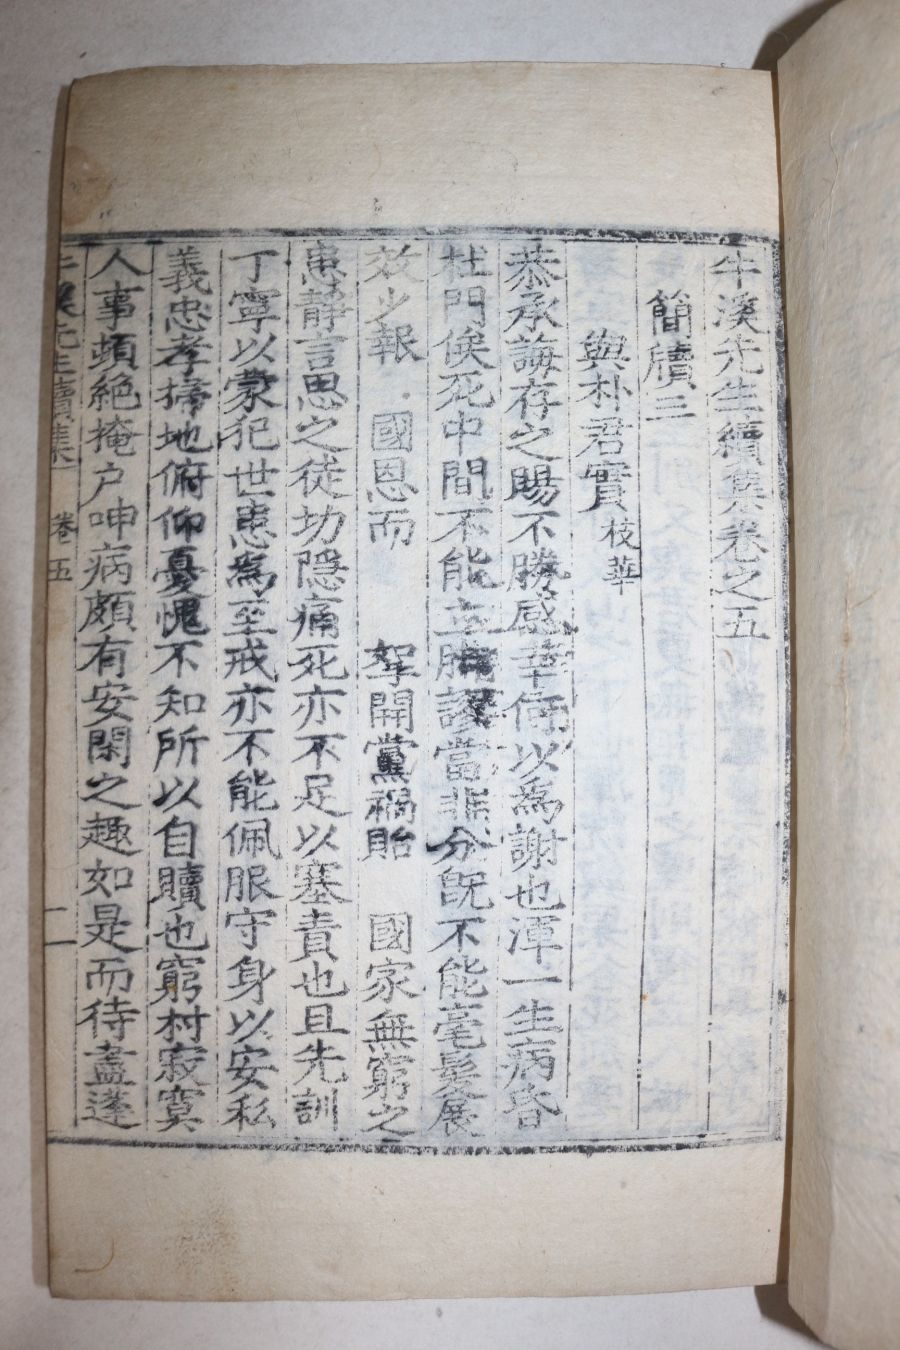 牛溪先生續集卷之五
簡牘三
與朴君實枝華
恭承誨存之賜不勝感幸何以爲謝也渾一生病昏
杜門俟死中間不能立脚謬當非分旣不能毫髮展
效少報 國恩而 挐開黨禍貽 國家無窮之
患靜言思之徒切隱痛死亦不足以塞責也且先訓
丁寧以蒙犯世患爲至戒亦不能佩服守身以安私
義忠孝掃地俯仰憂愧不知所以自贖也窮村寂寞
人事頓絶掩户呻病頗有安閑之趣如是而待盡遂
牛溪先生續集 卷五 一